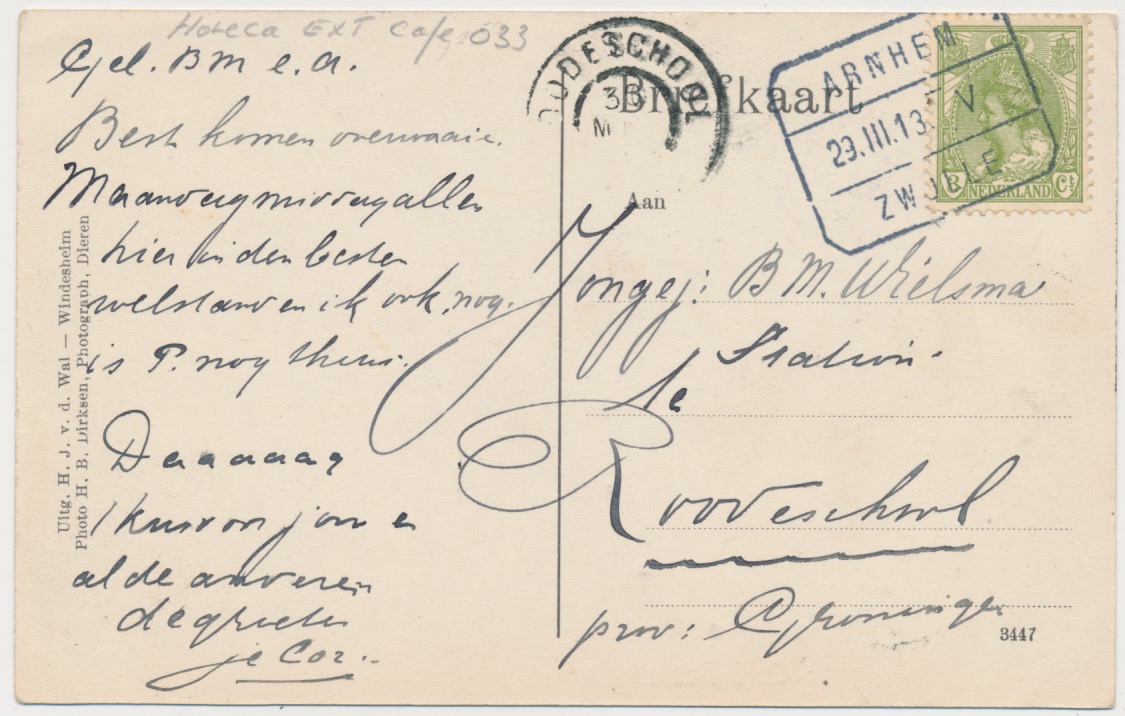 Horeca EXT Cafe 033
Gel. BM e.a.
Best komen overwaaie.
Maandagmiddag allen
hier in den besten
welstand en ik ook, nog.
is P. nog thuis.
Daaaaag
1 kus voor jou en
al de anderen
de groeten
je Cor.
Uitg. H. J. v. d. Wal — Windesheim
Photo H. B. Dirksen, Photograph, Dieren
Briefkaart
OODESCHOOL
30
M
ARNHEM
29.III.13 V
ZWOLLE
NEDERLAND
Ct
Aan
Jongej: B M. Wielsma
Station.
te
Roodeschool
prov: Groningen
3447